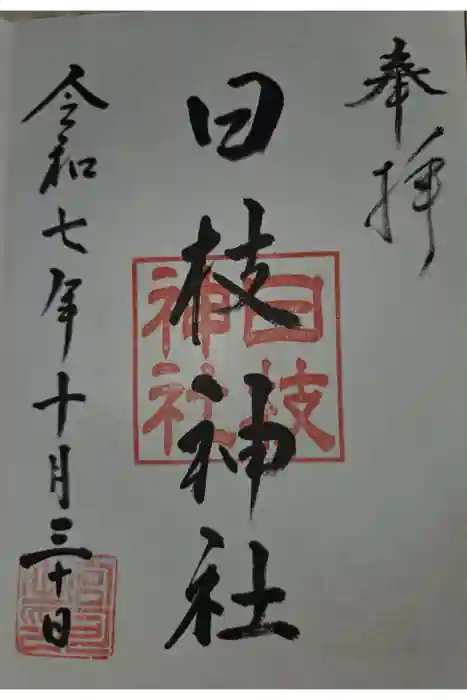 奉拝
日枝神社
日枝神社
令和七年十月三十日